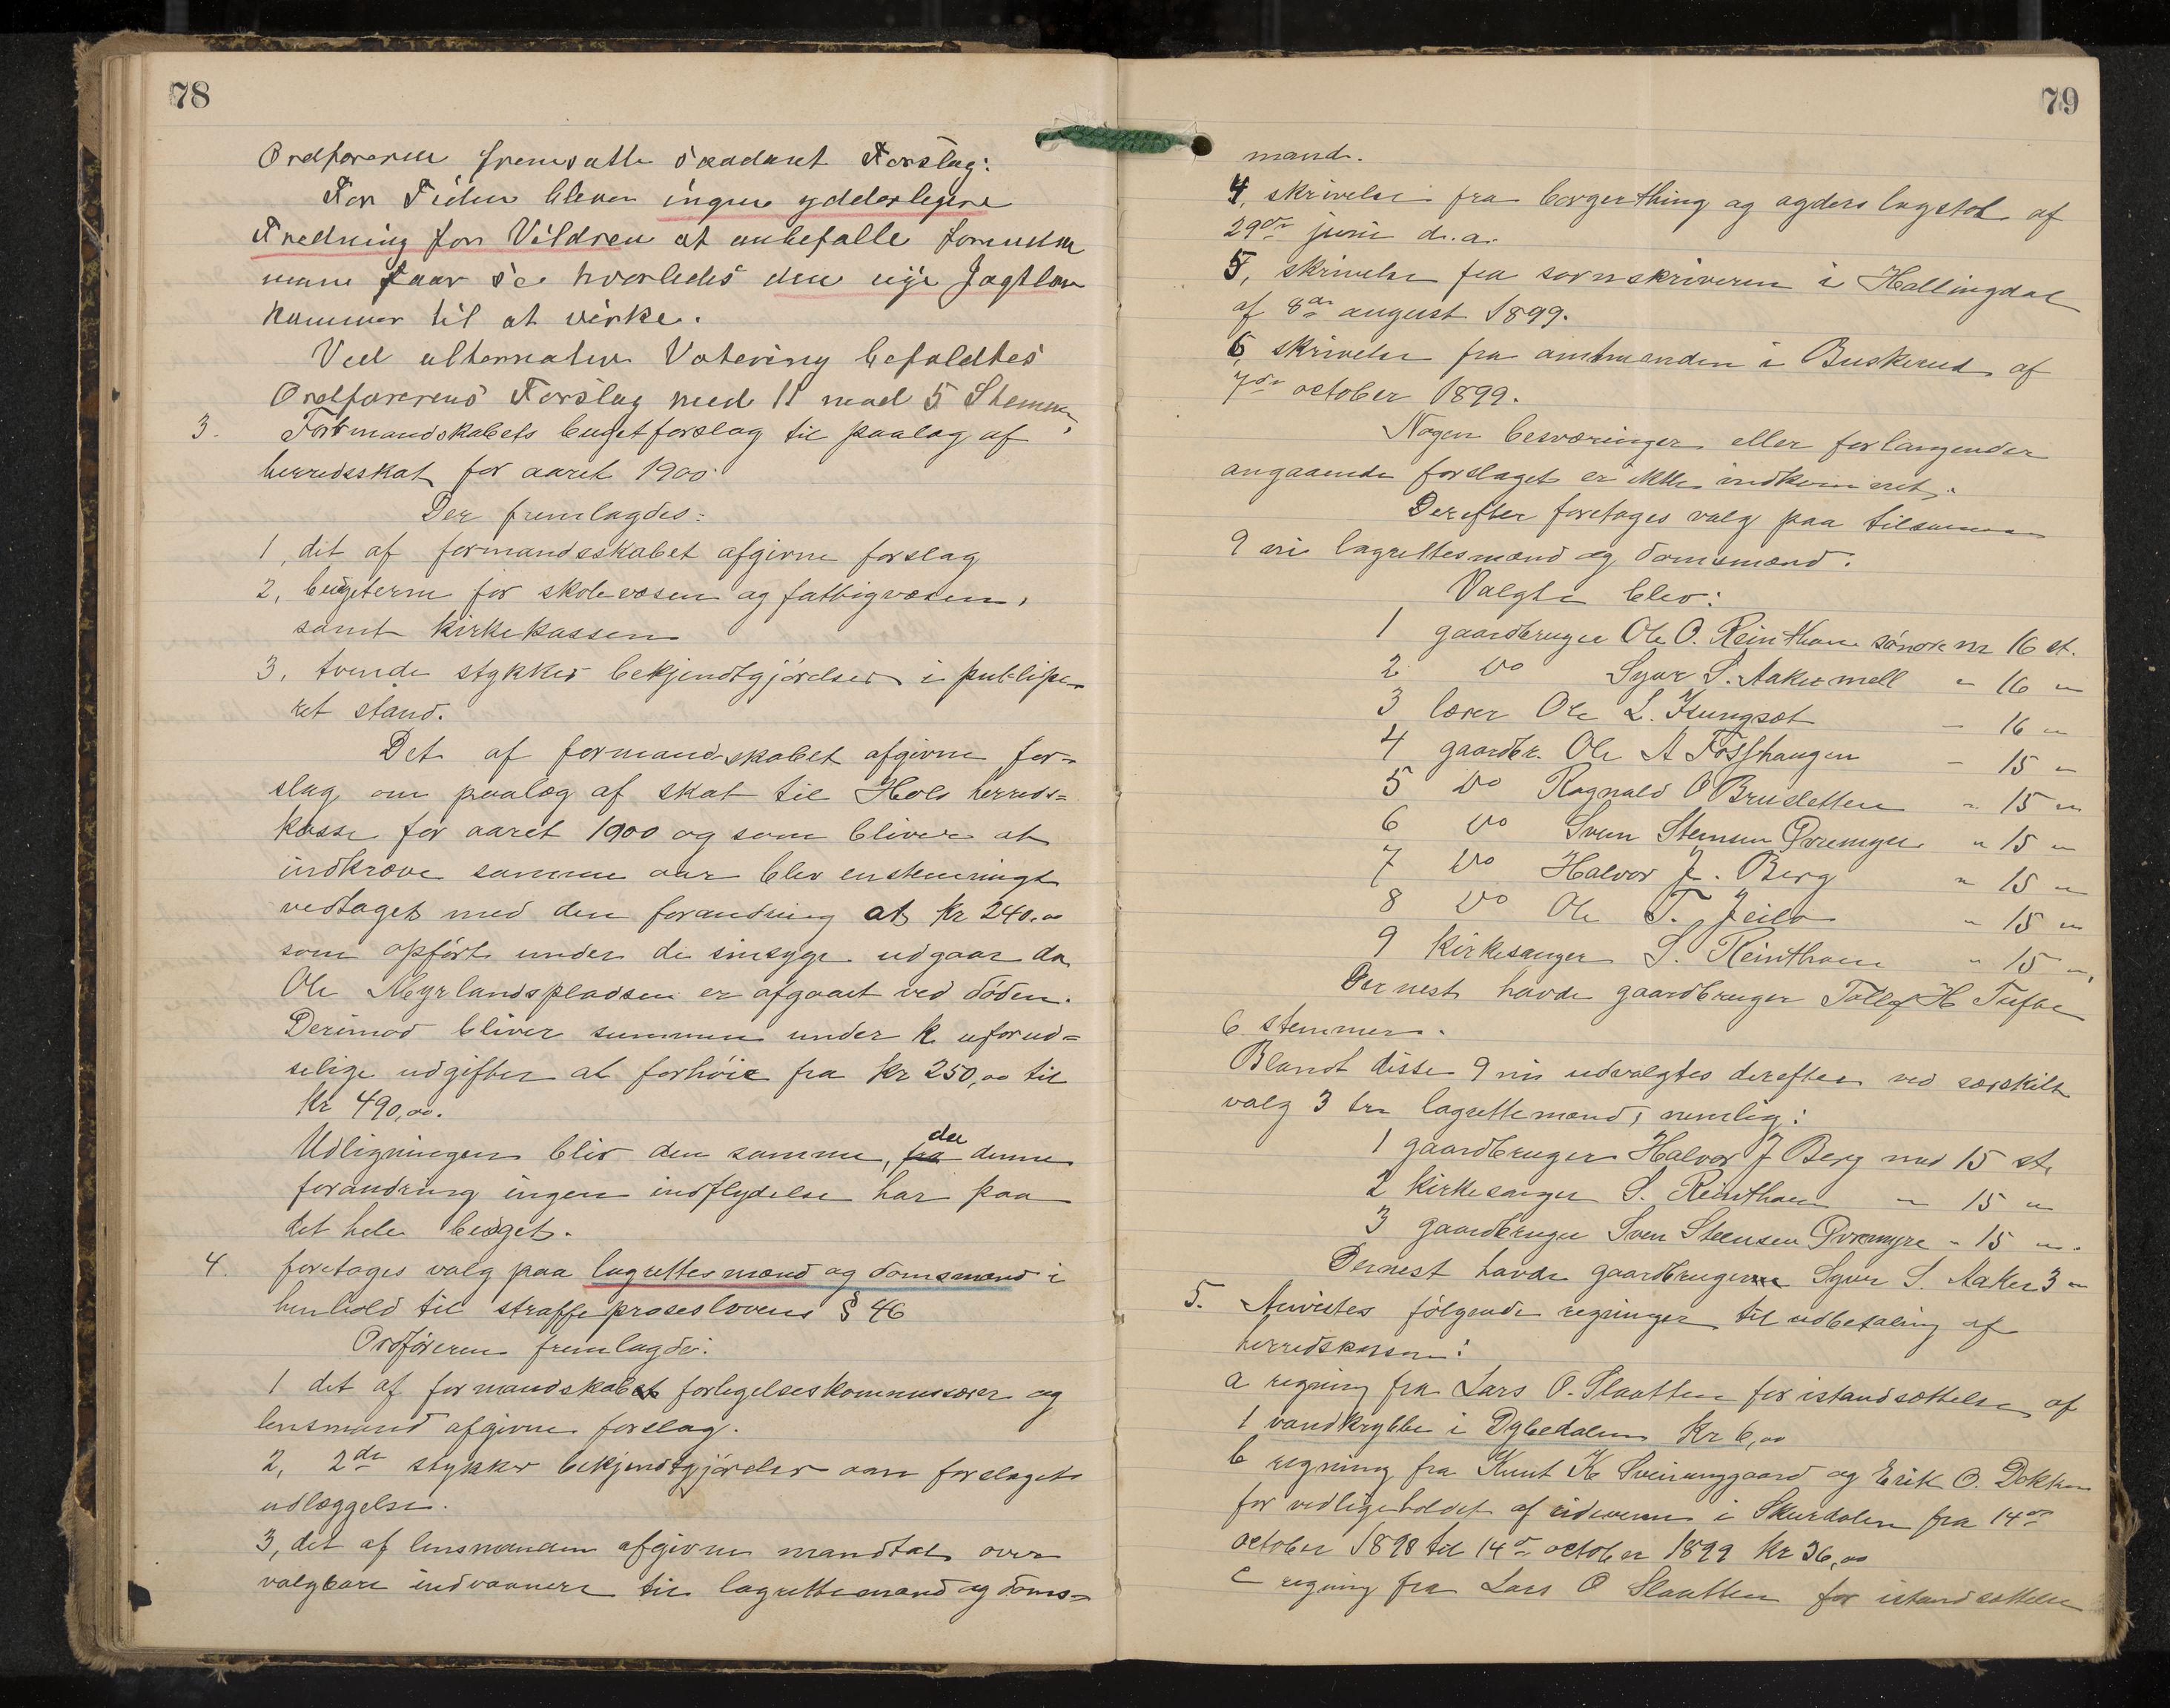 78
Ordføreren fremsatte saadant Forslag:
For Tiden bliver ingen ydderligere
Fredning for Vildren at anbefalle forinden
man faar se hvorledes den nye Jagtlov
kommer til at virke.
Ved alternativ Votering befaldtes
Ordførerens Forslag med 11 mod 5 Stemmer,
3. Formandskabets bugetforslag til paalæg af
herredsskat for aaret 1900
Der fremlagdes:
1, det af formandsskabet afgivne forslag
2, bugeterne for skolevæsen og fattigvæsen,
samt kirkekassen
3, tvende stykker bekjendtgjørelser i publise-
ret stand.
Det af formandskabet afgivne for=
slag om paalæg af skat til Hols herreds=
kasse for aaret 1900 og som bliver at
indkræve samme aar blev enstemmigt
vedtaget med den forandring at kr 240.00
som opført under de sinsyge udgaar da
Ole Myrlandspladsen er afgaaet ved døden.
Derimod bliver summen under k uforud=
selige udgifter at forhöie fra kr 250,00 til
kr 490,00.
Udligningen blir den samme, fra da denne
forandring ingen indflydelse har paa
det hele budget.
4. foretages valg paa lagrettesmænd og domsmænd i
henhold til straffeproseslovens § 46
Ordføreren fremlagde:
1 det af formandskabet forligelseskommissærer og
lensmand afgivne forslag.
2, 2de stykker bekjendtgjørelser om forslagets
udlæggelse.
3, det af lensmanden afgivne mandtal over
valgbare indvaanere til lagrettemænd og doms=
79
mænd.
4, skrivelse fra borgerthing og agders lagstol af
29de juni d.a.
5, skrivelse fra sornskriveren i Hallingdal
af 8de august 1899.
6, skrivelse fra amtmanden i Buskerud af
7de october 1899.
Nogen besværinger eller forlangender
angaaende forslaget er ikke indkommet.
Derefter foretages valg paa tilsammen
9 ni lagrettesmænd og domsmænd.
Valgte blev:
1 gaardbruger Ole O. Reinthon søndre m 16 st.
2 do Syver S. Aaker mell " 16 "
3 lærer Ole L. Kungsøt " 16 "
4 gaardbr. Ole A Fosshaugen " 15 "
5 do Ragnald O Brusletten " 15 "
6 do Sven Stensen Øvremyre " 15 "
7 do Halvor J. Berg " 15 "
8 do Ole T. Jeilo " 15 "
9 kirkesanger S. Reinthon " 15 ",
Dernest havde gaardbruger Tollef H Tufte
6 stemmer.
Blandt disse 9 ni udvalgtes derefter ved særskilt
valg 3 tre lagrettemænd, nemlig:
1 gaardbruger Halvor J Berg med 15 st,
2 kirkesanger S. Reinthon " 15 "
3 gaardbruger Sven Steensen Øvremyre " 15 ".
Dernest havde gaardbrugerne Syver S. Aaker 3 "
5. Anvistes følgende regninger til udbetaling af
herredskassen:
a regning fra Lars O. Slaatten for istandsættelse af
1 vandkrybbe i Dybedalen kr 6,00
b regning fra Knut K Sveinunggaard og Erik O. Dokken
for vedligeholdet af rideveien i Skurdalen fra 14de
october 1898 til 14de october 1899 kr 36,00
c regning fra Lars O Slaatten for istandsættelse